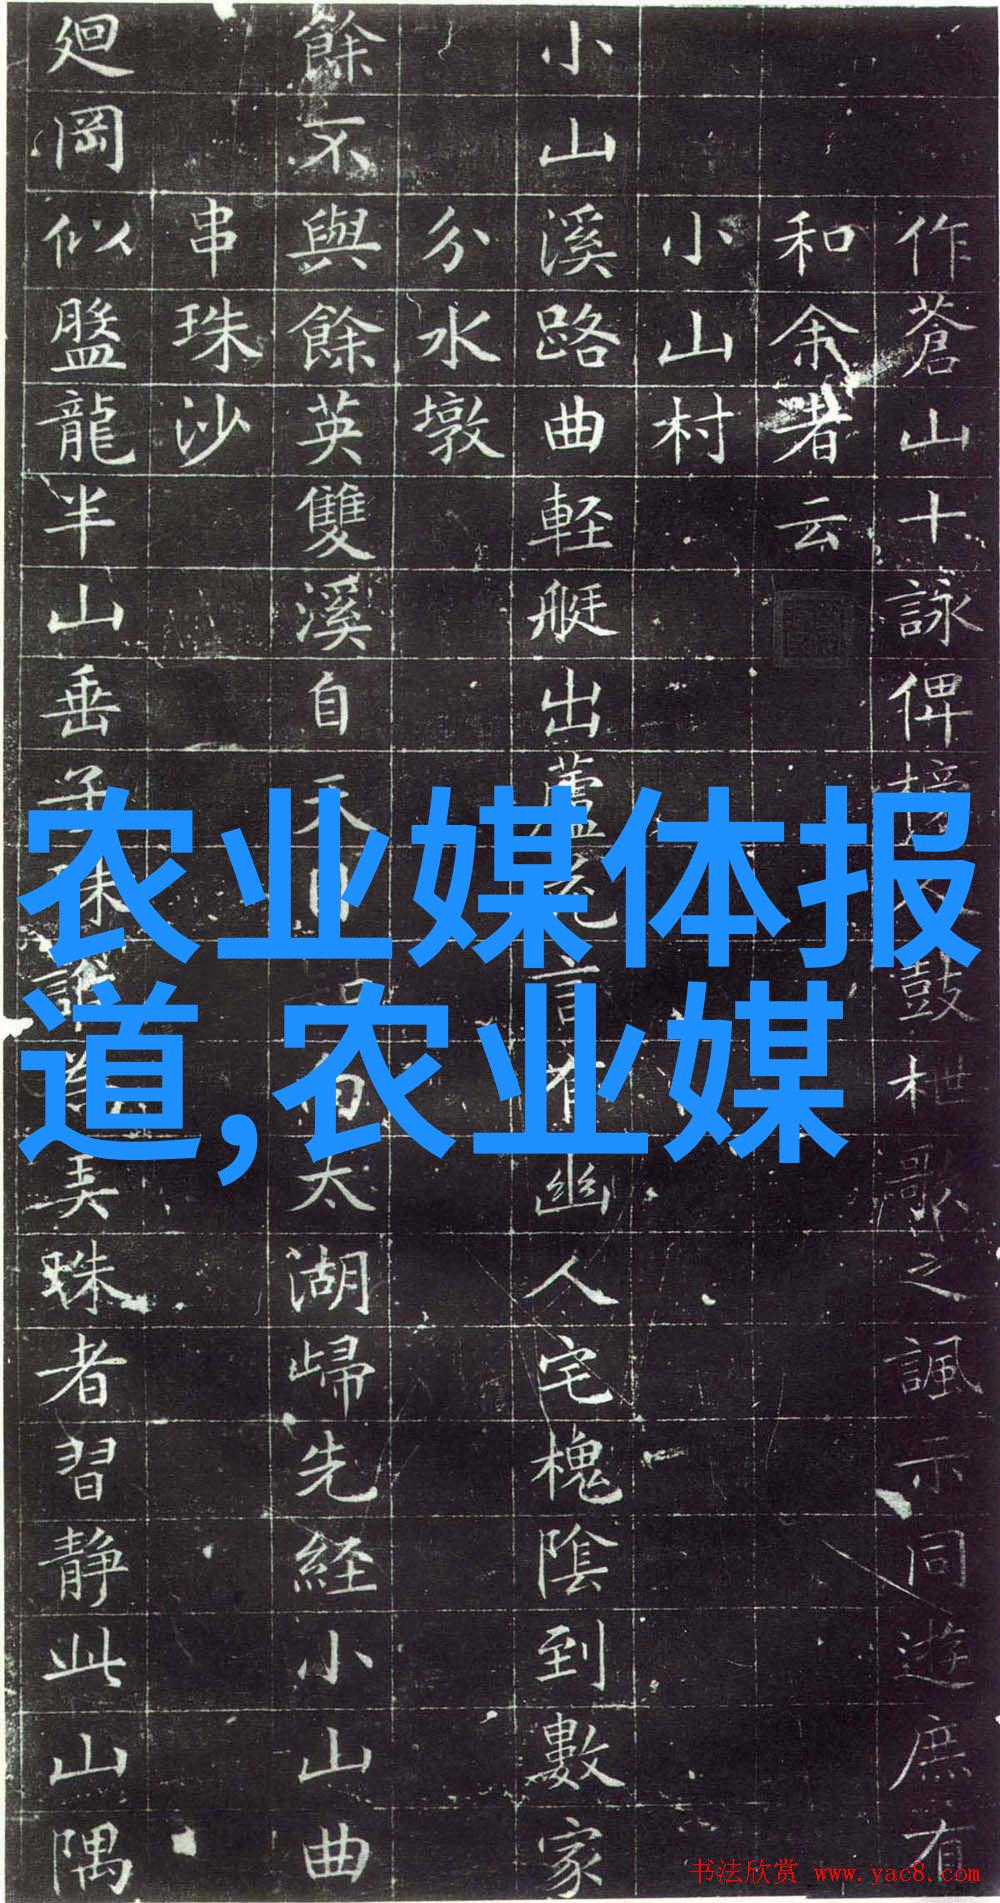 作蒼山十詠俾鼓枻歌之諷示同遊庶有
和余者云
小山村
小山溪路曲軽艇出蘆言有幽人宅槐陰到數家
分水墩
餘不與餘英雙溪自天向太湖歸先経小山曲
串珠沙
廻岡似盤龍半山垂美珠者習静此山隅
农业媒体报
道,农业媒
书法欣赏 www.yac8.com